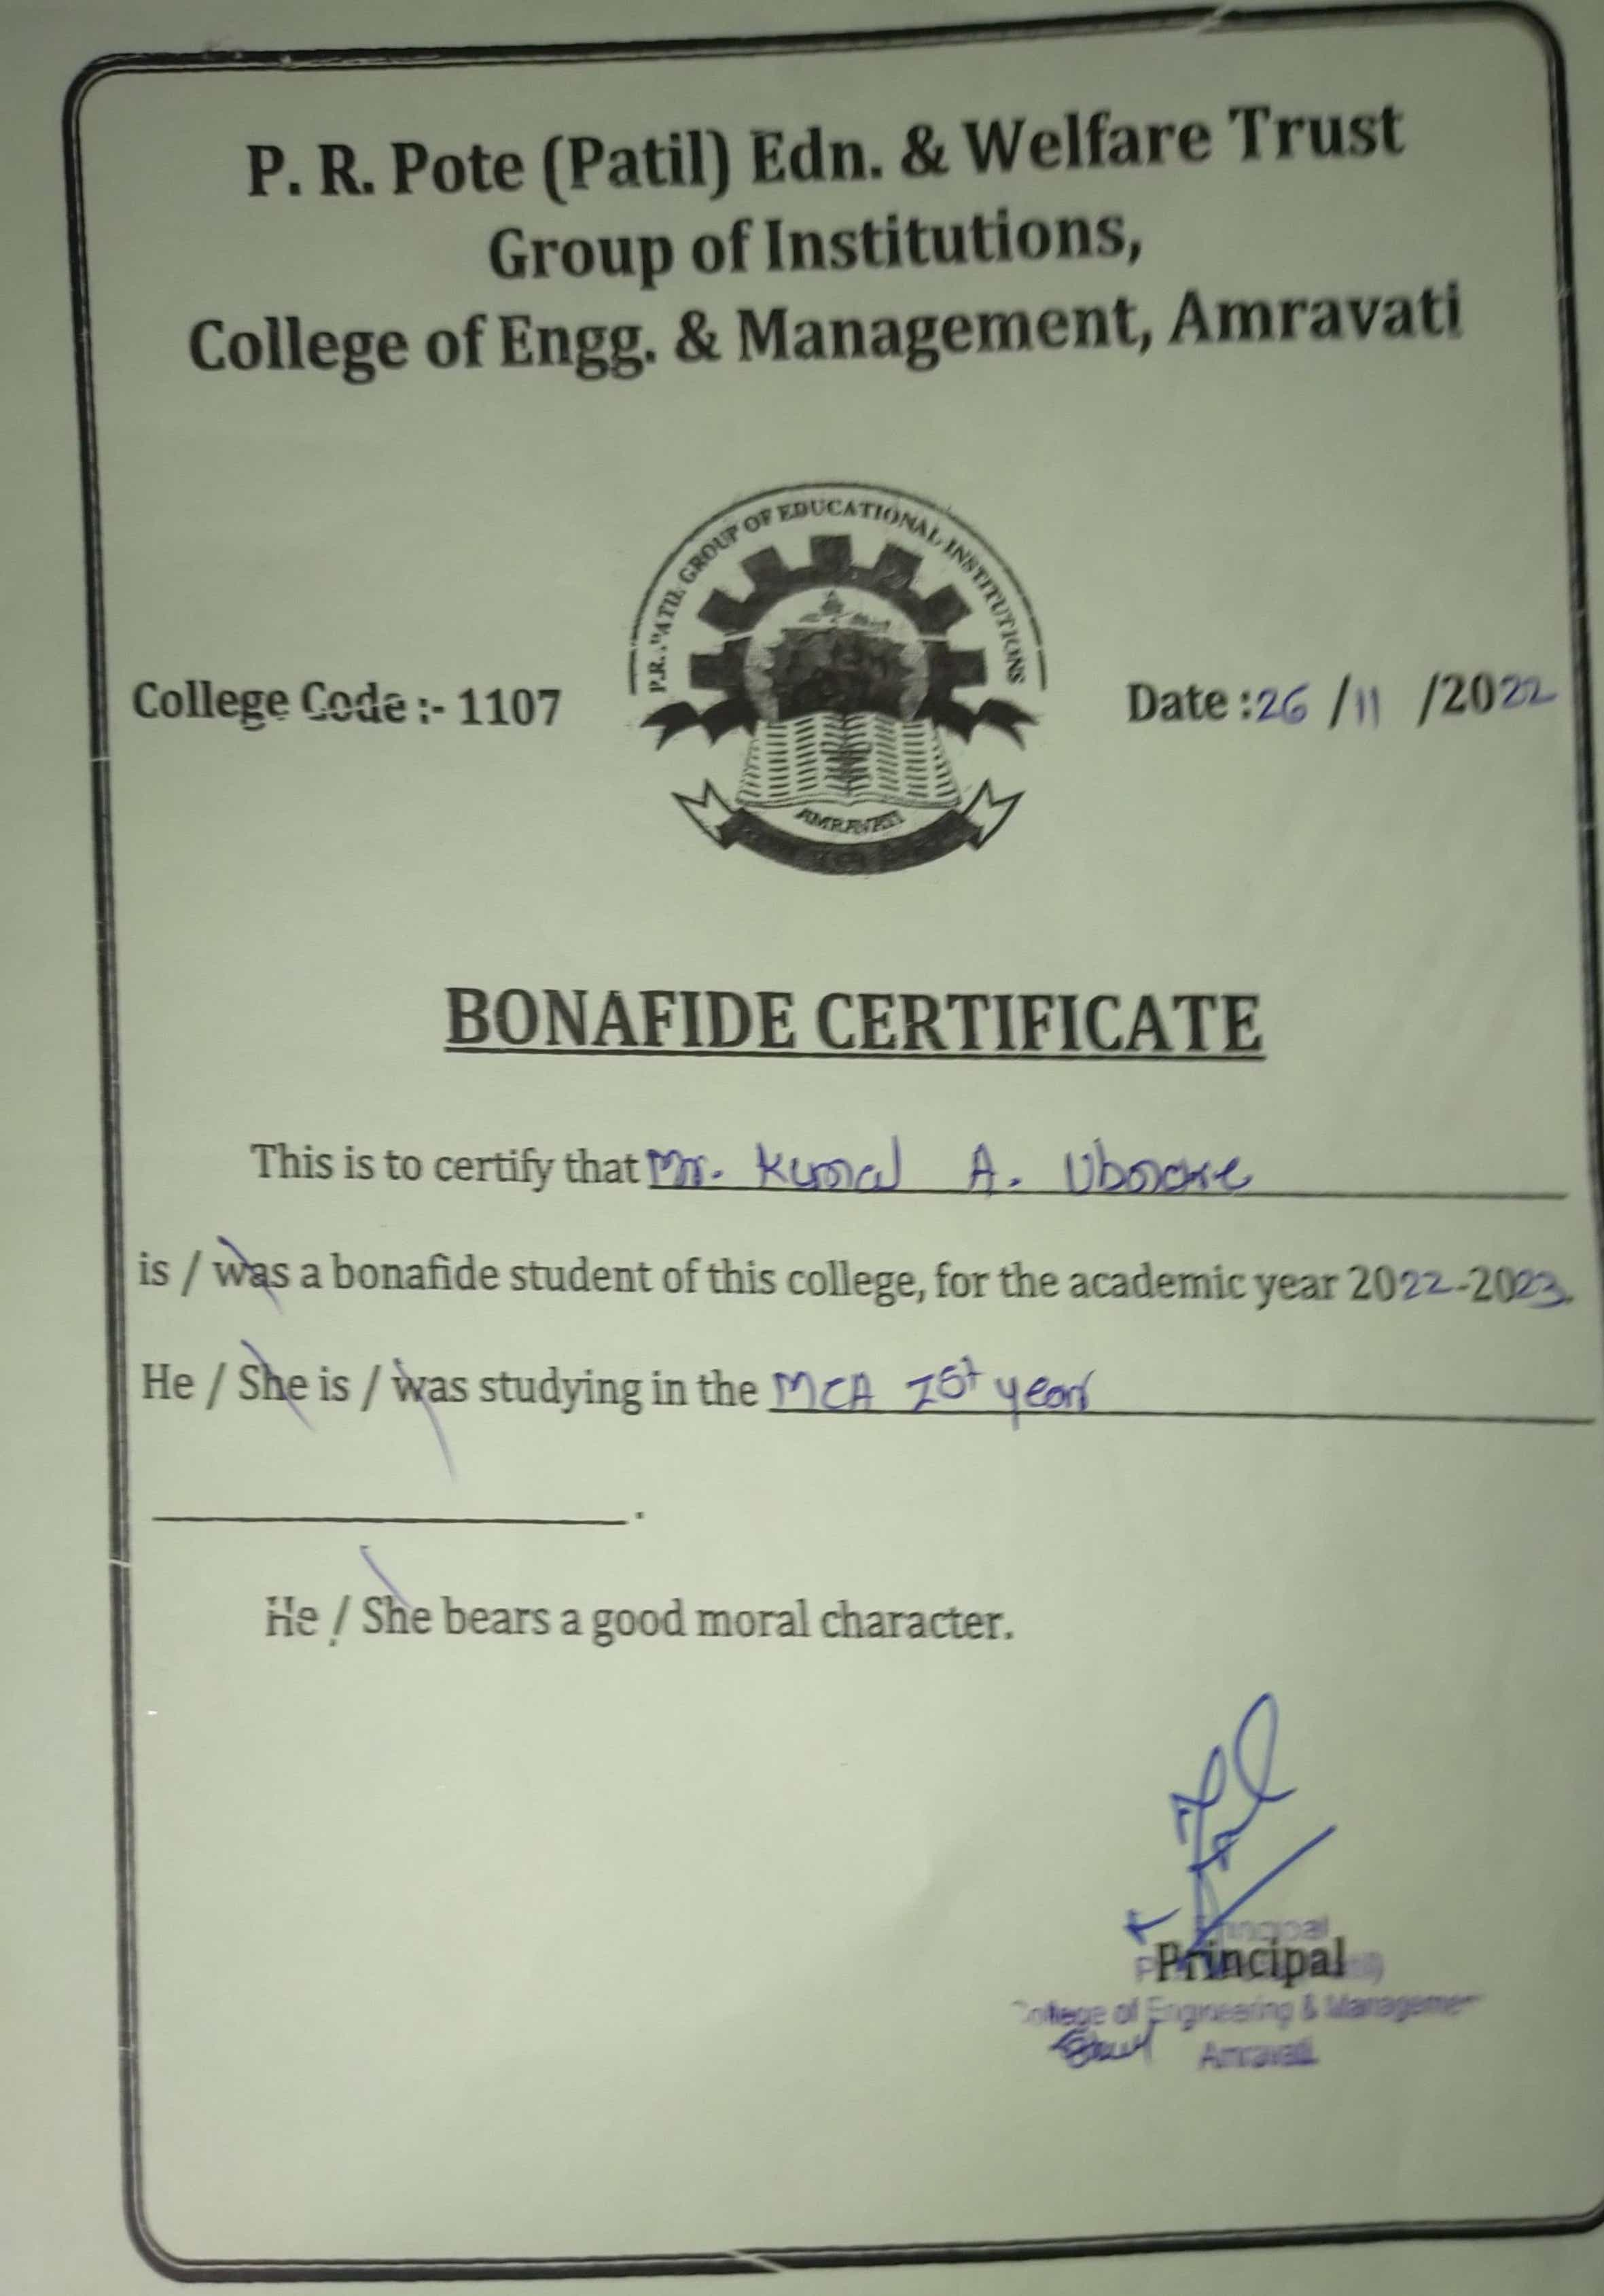 P. R. Pote (Patil) Edn. & Welfare Trust
Group of Institutions,
College of Engg. & Management, Amravati
P.R. PATIL GROUP OF EDUCATIONAL INSTITUTIONS
AMRAVATI
College Code :- 1107
Date :26 /11 /2022
BONAFIDE CERTIFICATE
This is to certify that Mr. Kunal A. Ubnare
is / was a bonafide student of this college, for the academic year 2022-2023.
He / She is / was studying in the MCA Ist year
He / She bears a good moral character.
Principal
Principal
College of Engineering & Management
Amravati.